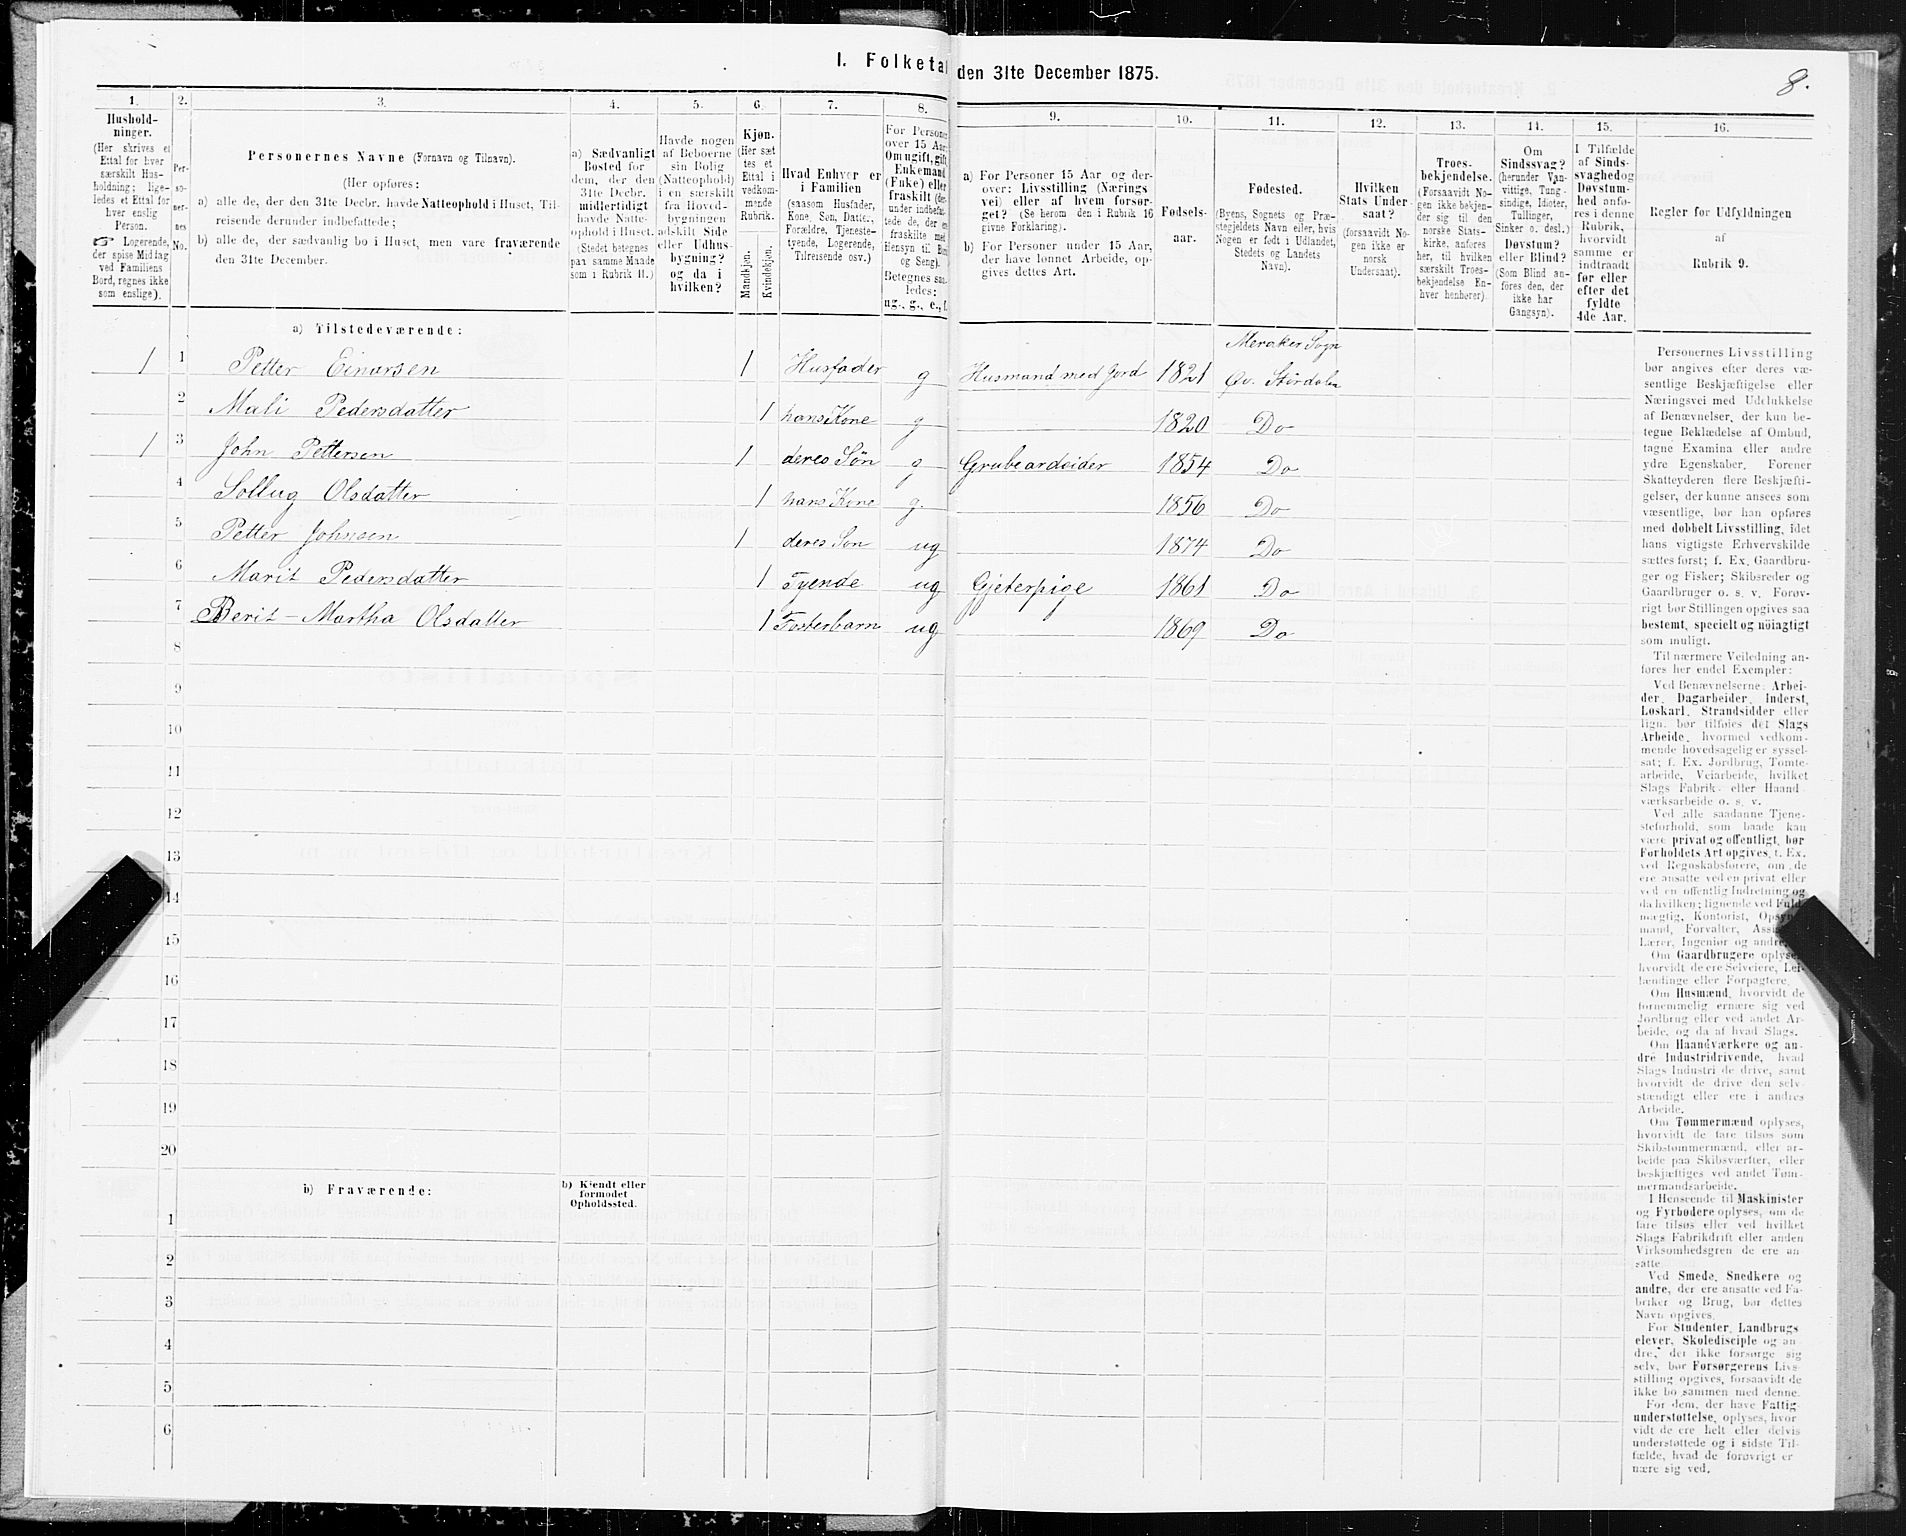 I. Folketal den 31te December 1875.
8.
1. 2. 3. 4. 5. 6. 7. 8. 9. 10. 11. 12. 13. 14. 15. 16.
Hushold-
ninger.
(Her skrives et
Ettal for hver
særskilt Hus-
holdning; lige-
ledes et Ettal for
hver enslig
Person.
☞ Logerende,
der spise Middag
ved Familiens
Bord, regnes ikke
som enslige).
Per-
so-
ner-
nes
No.
Personernes Navne (Fornavn og Tilnavn).
(Her opføres:
a) alle de, der den 31te Decbr. havde Natteophold i Huset, Til-
reisende derunder indbefattede;
b) alle de, der sædvanlig bo i Huset, men vare fraværende
den 31te December.
a) Sædvanligt
Bosted for
dem, der den
31te Decbr.
midlertidigt
havde Natte-
ophold i Huset.
(Stedet betegnes
paa samme Maade
som i Rubrik 11.)
Havde nogen
af Beboerne
sin Bolig
(Natteophold)
i en særskilt
fra Hoved-
bygningen
adskilt Side
eller Udhus-
bygning?
og da i
hvilken?
Kjøn.
(Her sæt
tes et
Ettal i
vedkom-
mende
Rubrik.
Mandkjøn.
Kvindekjøn.
Hvad Enhver er
i Familien
(saasom Husfader,
Kone, Søn, Datter,
Forældre, Tjeneste-
tyende, Logerende,
Tilreisende osv.)
For Personer
over 15 Aar:
Om ugift, gift,
Enkemand
(Enke) eller
fraskilt (der-
under indbefat-
tede de, der ere
fraskilte med
Hensyn til Bord
og Seng).
Betegnes saa-
ledes:
ug., g., e., f.
a) For Personer 15 Aar og der-
over: Livsstilling (Nærings
vei) eller af hvem forsør-
get? (Se herom den i Rubrik 16
givne Forklaring).
b) For Personer under 15 Aar,
der have lønnet Arbeide, op-
gives dettes Art.
Fødsels-
aar.
Fødested.
(Byens, Sognets og Præ-
stegjeldets Navn eller, hvis
Nogen er født i Udlandet,
Stedets og Landets
Navn).
Hvilken
Stats Under-
saat?
(forsaavidt No-
gen ikke er
norsk
Undersaat).
Troes-
bekjendelse.
(Forsaavidt No-
gen ikke bekjen-
der sig til den
norske Stats-
kirke, anføres
her, til hvilken
særskilt Troes-
bekjendelse En-
hver henhører).
Om
Sindssvag?
(herunder Van-
vittige, Tung-
sindige, Idioter,
Tullinger,
Sinker o. desl.)
Døvstum?
eller Blind?
(Som Blind an-
føres den, der
ikke har
Gangsyn).
I Tilfælde
af Sinds-
svaghed og
Døvstum-
hed anfø-
res i denne
Rubrik,
hvorvidt
samme er
indtraadt
før eller
efter det
fyldte
4de Aar.
Regler for Udfyldningen
af
Rubrik 9.
a) Tilstedeværende:
Meraker Sogn
1 1 Petter Einarsen 1 Husfader g Husmand med Jord 1821 Øv. Størdalen
2 Mali Pedersdatter 1 hans Kone g 1820 Do
1 3 John Pettersen 1 deres Søn g Grubearbeider 1854 Do
4 Sollug Olsdatter 1 hans Kone g. 1856 Do
5 Petter Johnsen 1 deres Søn ug 1874 Do
6 Marit Pedersdatter 1 Tyende ug Gjeterpige 1861 Do
7 Berit-Martha Olsdatter 1 Fosterbarn ug 1869 Do
8
9
10
11
12
13
14
15
16
17
18
19
20
b) Fraværende:
b) Kjendt eller
formodet
Opholdssted.
1
2
3
4
5
6
Personernes Livsstilling
bør angives efter deres væ-
sentlige Beskjæftigelse eller
Næringsvei med Udelukkelse
af Benævnelser, der kun be-
tegne Beklædelse af Ombud,
tagne Examina eller andre
ydre Egenskaber. Forener
Skatteyderen flere Beskjæfti-
gelser, der kunne ansees som
væsentlige, bør han opføres
med dobbelt Livsstilling, idet
hans vigtigste Erhvervskilde
sættes først; f. Ex. Gaardbru-
ger og Fisker; Skibsreder og
Gaardbruger o. s. v. Forøv-
rigt bør Stillingen opgives saa
bestemt, specielt og nøiagtigt
som muligt.
Til nærmere Veiledning an-
føres her endel Exempler:
Ved Benævnelserne: Arbei-
der, Dagarbeider, Inderst,
Løskarl, Strandsidder eller
lign. bør tilføies det Slags
Arbeide, hvormed vedkom-
mende hovedsagelig er syssel-
sat; f. Ex. Jordbrug, Tomte-
arbeide, Veiarbeide, hvilket
Slags Fabrik- eller Haand-
værksarbeide o. s. v.
Ved alle saadanne Tjene-
steforhold, som baade kan
være privat og offentligt, bør
Forholdets Art opgives, f. Ex.
ved Regnskabsførere, om de
ere ansatte ved en privat eller
ved en offentlig Indretning og
da hvilken; lignende ved Fuld-
mægtig, Kontorist, Opsyns-
mand, Forvalter, Assi
Lærer, Ingeniør og andre.
Om Gaardbrugere oplyses,
hvorvidt de ere Selveiere, Lei-
lændinge eller Forpagtere.
Om Husmænd, hvorvidt de
fornemmelig ernære sig ved
Jordbrug eller ved andet Ar-
beide, og da af hvad Slags.
Om Haandværkere og an-
dre Industridrivende, hvad
Slags Industri de drive, samt
hvorvidt de drive den selv-
stændigt eller ere i andres
Arbeide.
Om Tømmermænd oplyses,
hvorvidt de fare tilsøs som
Skibstømmermænd, eller ar-
beide paa Skibsværfter, eller
beskjæftiges ved andet Tøm-
mermandsarbeide.
I Henseende til Maskinister
og Fyrbødere oplyses, om de
fare tilsøs eller ved hvilket
Slags Fabrikdrift eller anden
Virksomhedsgren de ere an-
satte.
Ved Smede, Snedkere og
andre, der ere ansatte ved Fa-
briker og Brug, bør dettes
Navn opgives.
For Studenter, Landbrugs
elever, Skoledisciple og an-
dre, der ikke forsørge sig
selv, bør Forsørgerens Livs-
stilling opgives, forsaavidt de
ikke bo sammen med denne.
For dem, der have Fattig-
understøttelse, oplyses, hvor
vidt de ere helt eller delvis
understøttede og i sidste Til-
fælde, hvad de forøvrigt er
nære sig ved.